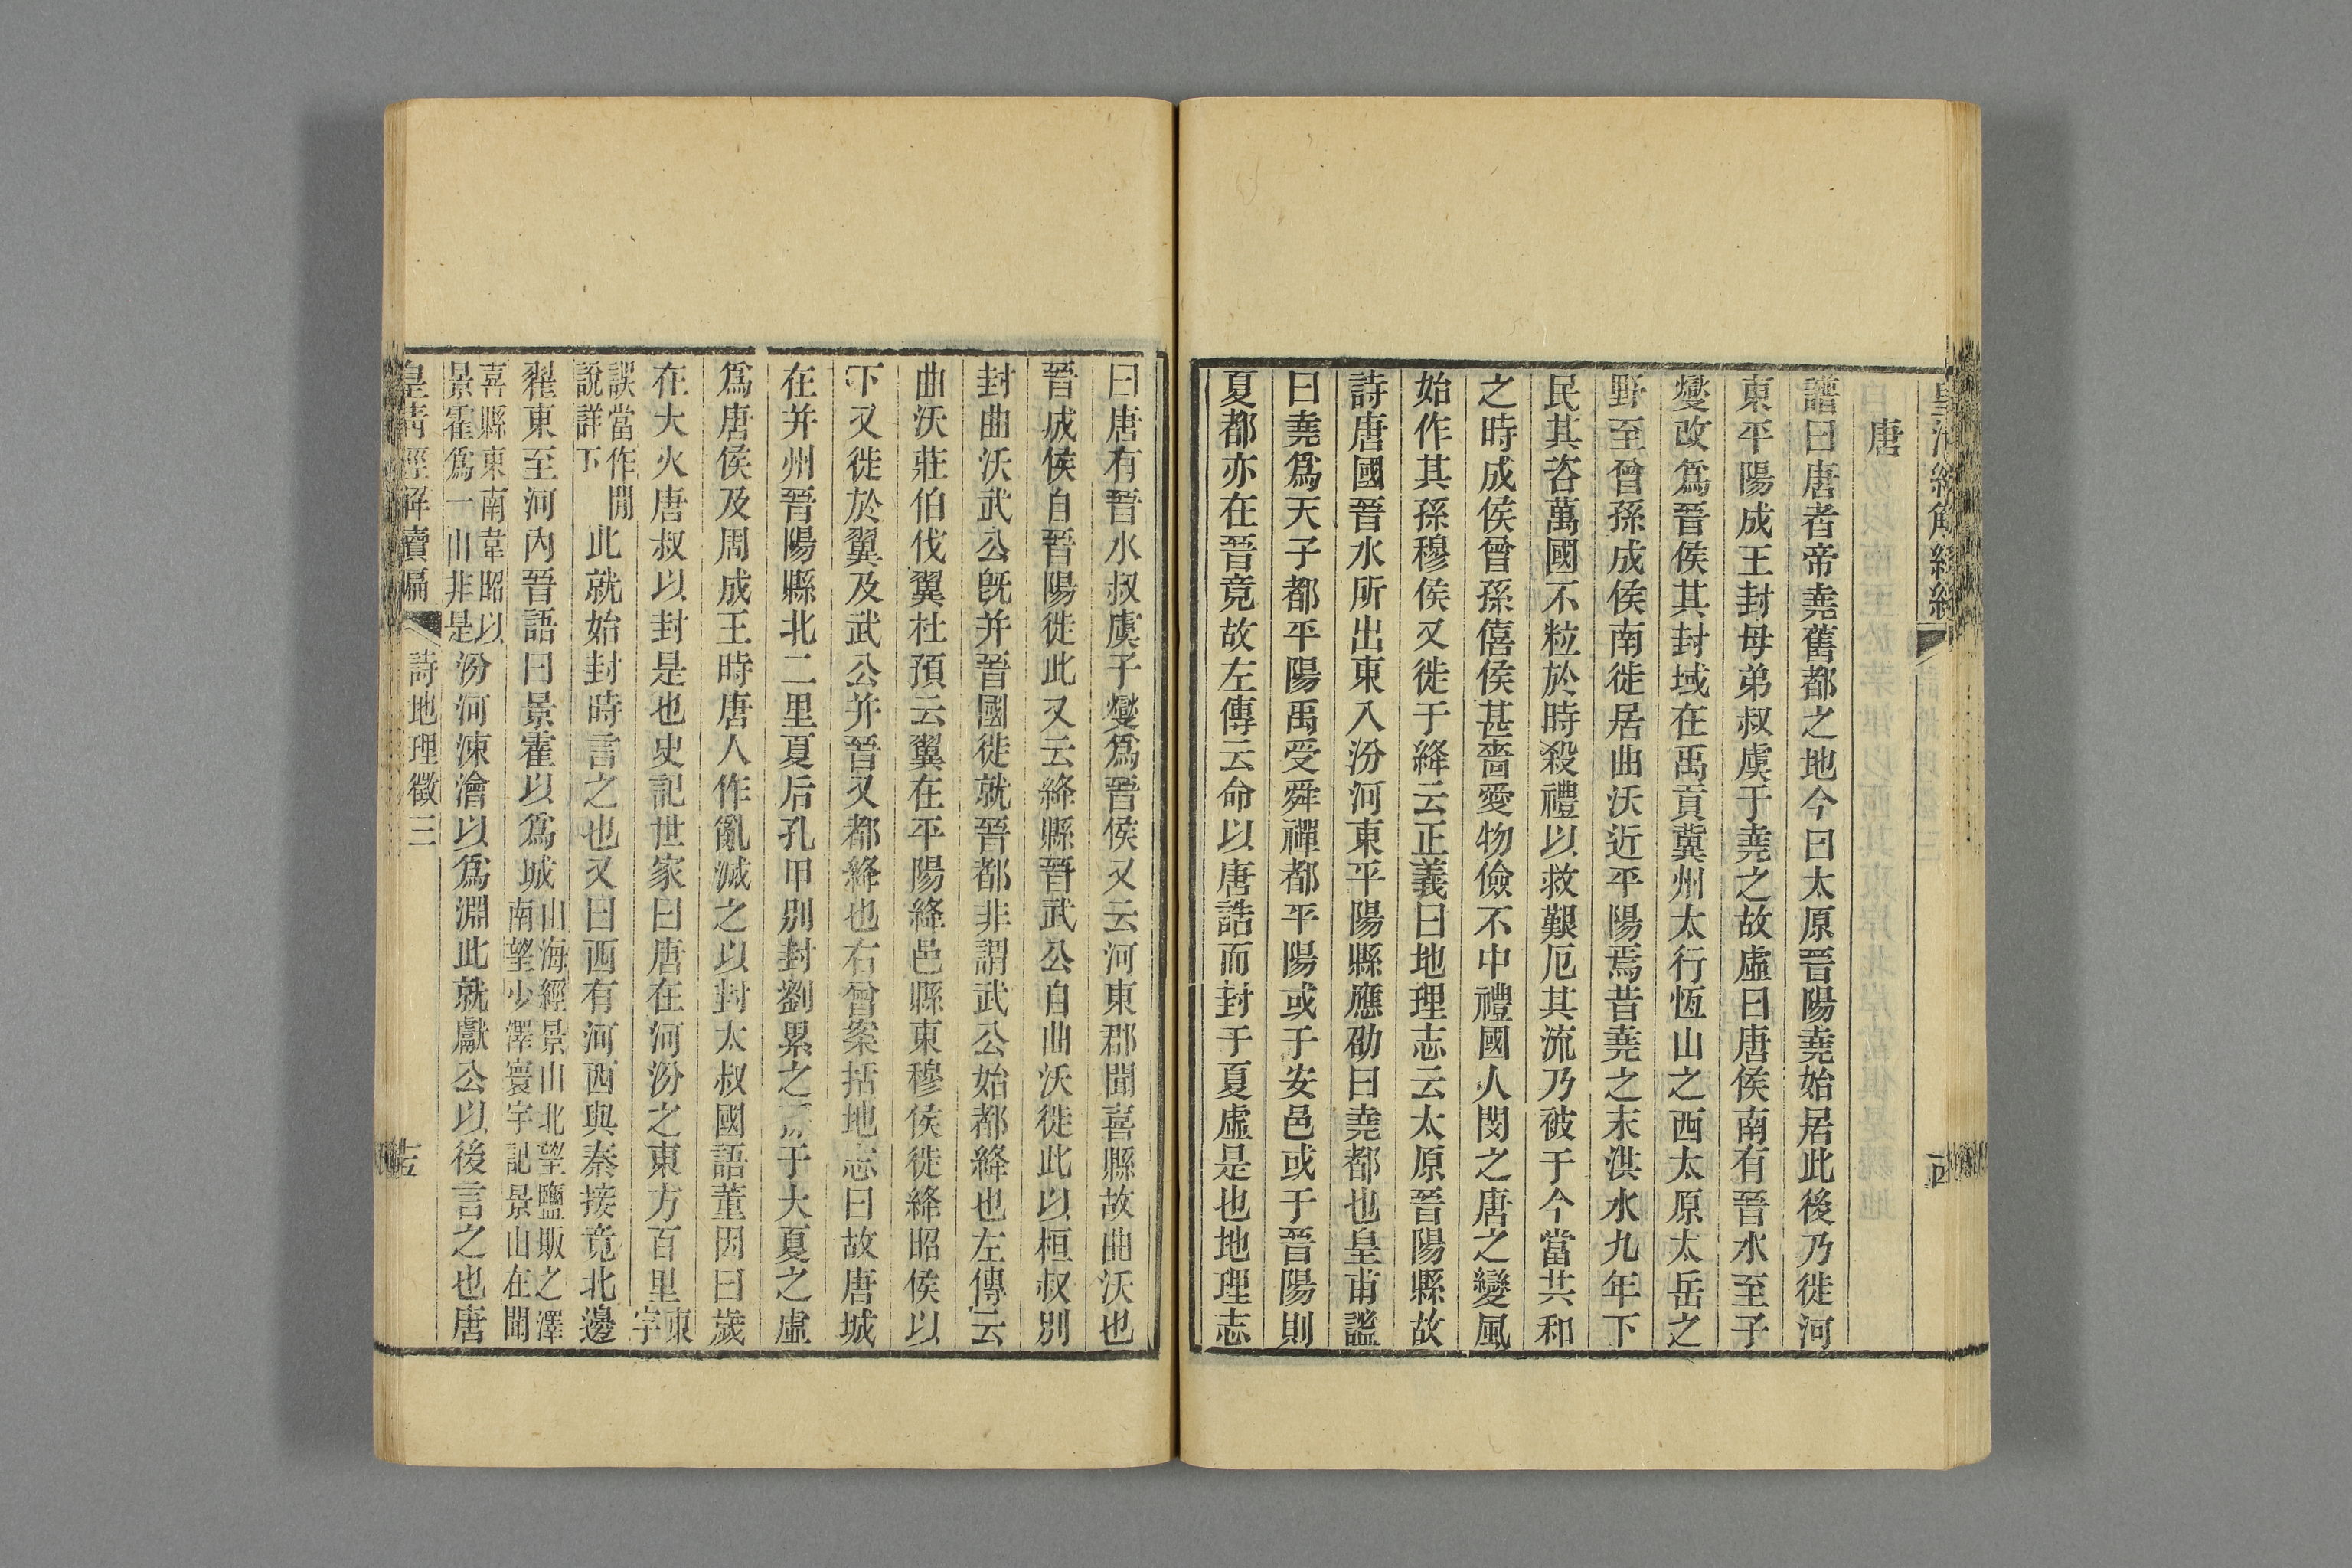 唐
譜曰唐者帝堯舊都之地今曰太原晉陽堯始居此後乃徙河
東平陽成王封母弟叔虞于堯之故虛曰唐侯南有晉水至子
燮改爲晉侯其封域在禹貢冀州太行恆山之西太原太岳之
野至曾孫成侯南徙居曲沃近平陽焉昔堯之末洪水九年下
民其咨萬國不粒於時殺禮以救艱厄其流乃被于今當共和
之時成侯曾孫僖侯甚嗇愛物儉不中禮國人閔之唐之變風
始作其孫穆侯又徙于絳云正義曰地理志云太原晉陽縣故
詩唐國晉水所出東入汾河東平陽縣應劭曰堯都也皇甫謐
曰堯爲天子都平陽禹受舜禪都平陽或于安邑或于晉陽則
夏都亦在晉竟故左傳云命以唐誥而封于夏虛是也地理志
曰唐有晉水叔虞子燮爲晉侯又云河東郡聞喜縣故曲沃也
晉成侯自晉陽徙此又云絳縣晉武公自曲沃徙此以桓叔別
封曲沃武公既并晉國徙就晉都非謂武公始都絳也左傳云
曲沃莊伯伐翼杜預云翼在平陽絳邑縣東穆侯徙絳昭侯以
下又徙於翼及武公并晉又都絳也右曾案括地志曰故唐城
在并州晉陽縣北二里夏后孔甲別封劉累之孫于大夏之虛
爲唐侯及周成王時唐人作亂滅之以封太叔國語董因曰歲
在大火唐叔以封是也史記世家曰唐在河汾之東方百里東字
誤當作閒說詳下此就始封時言之也又曰西有河西與秦接竟北邊
翟東至河內晉語曰景霍以爲城山海經景山北望鹽販之澤南望少澤寰宇記景山在聞
喜縣東南韋昭以景霍爲一山非是汾河涑澮以爲淵此就獻公以後言之也唐
皇清經解續編 詩地理徵三